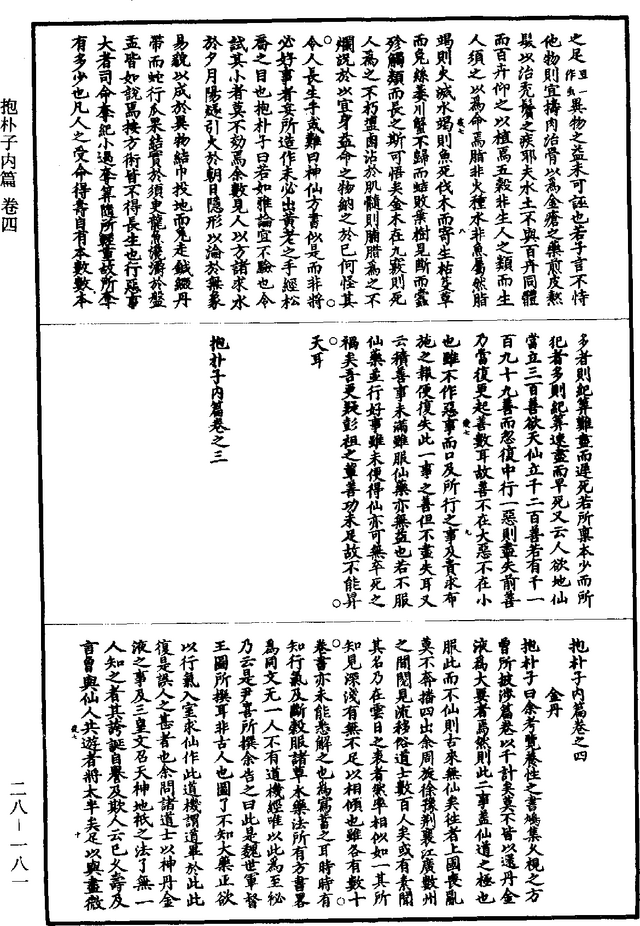 抱朴子内篇 卷四
之足豆一作虫異物之益未可誣也若子言不恃
他物則宜擣肉治骨以為金瘡之藥煎皮熬
髮以治禿鬢之疾耶夫水土不與百卉同體
而百卉仰之以植焉五穀非生人之類而生
人須之以為命焉脂非火種水非魚屬然脂
竭則火滅水竭則魚死伐木而寄生枯芟草
而兔絲萎川蟹不歸而蛣敗桑樹見斷而蠹
殄觸類而長之斯可悟矣金木在九竅則死
人為之不朽鹽鹵沾於肌髓則脯腊為之不
爛況於以宜身益命之物納之於己何怪其
令人長生乎或難曰神仙方書似是而非將
必好事者妄所造作未必出黃老之手經松
喬之目也抱朴子曰若如雅論宜不驗也今
試其小者莫不効焉余數見人以方諸求水
於夕月陽燧引火於朝日隱形以淪於無象
易貌以成於異物結巾投地而兔走鍼綴丹
帶而蛇行瓜果結實於須臾龍魚瀺灂於盤
盂皆如說焉按方術皆不得長生也行惡事
大者司命奪紀小過奪算隨所輕重故所奪
有多少也凡人之受命得壽自有本數數本
多者則紀算難盡而遲死若所稟本少而所
犯者多則紀算速盡而早死又云人欲地仙
當立三百善欲天仙立千二百善若有千一
百九十九善而忽復中行一惡則盡失前善
乃當復更起善數耳故善不在大惡不在小
也雖不作惡事而口及所行之事及責求布
施之報便復失此一事之善但不盡失耳又
云積善事未滿雖服仙藥亦無益也若不服
仙藥並行好事雖未便得仙亦可無卒死之
禍矣吾更疑彭祖之輩善功未足故不能昇
天耳
抱朴子內篇卷之三
抱朴子內篇卷之四
金丹
抱朴子曰余考覽養性之書鳩集久視之方
曾所披涉篇卷以千計矣莫不皆以還丹金
液為大要者焉然則此二事蓋仙道之極也
服此而不仙則古來無仙矣往者上國喪亂
莫不奔播四出余周旋徐豫荆襄江廣數州
之間閱見流移俗道士數百人矣或有素聞
其名乃在雲日之表者然率相似如一其所
知見深淺有無不足以相傾也雖各有數十
卷書亦未能悉解之也為寫蓄之耳時時有
知行氣及斷穀服諸草木藥法所有方書畧
為同文無一人不有道機經唯以此為至秘
乃云是尹喜所撰余告之曰此是魏世軍督
王圖所撰耳非古人也圖了不知大藥正欲
以行氣入室求仙作此道機謂道畢於此此
復是誤人之甚者也余問諸道士以神丹金
液之事及三皇文召天神地祇之法了無一
人知之者其誇誕自譽及欺人云已久壽及
言曾與仙人共遊者將太半矣足以與盡微
二八—一八一